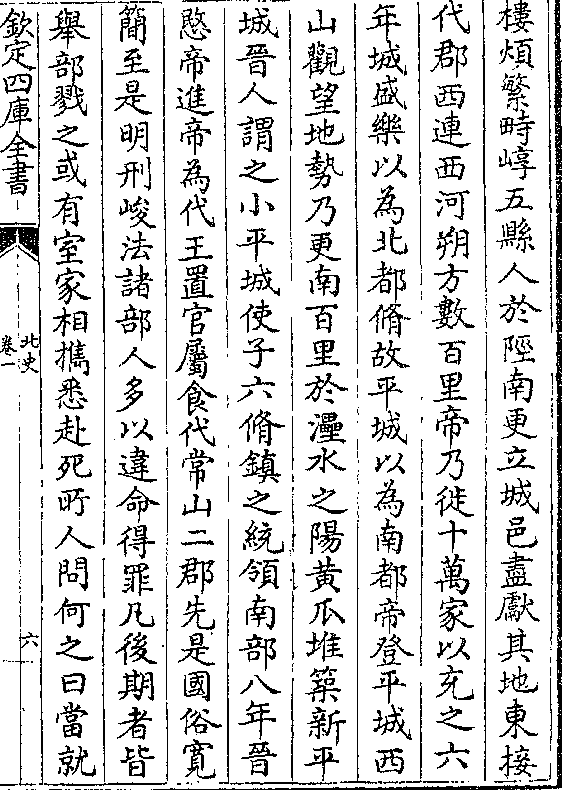 樓煩繁畤崞五縣人於陘南更立城邑盡獻其地東接
代郡西連西河朔方數百里帝乃徙十萬家以充之六
年城盛樂以為北都脩故平城以為南都帝登平城西
山觀望地勢乃更南百里於㶟水之陽黃瓜堆築新平
城晉人謂之小平城使子六脩鎮之統領南部八年晉
愍帝進帝為代王置官屬食代常山二郡先是國俗寛
簡至是明刑峻法諸部人多以違命得罪凡後期者皆
舉部戮之或有室家相攜悉赴死所人問何之曰當就
欽定四庫全書
北史
卷一
六